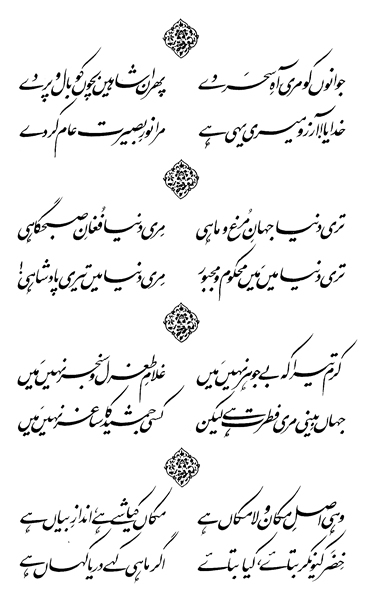 جوانوں کو مری آہِ سحر دے پھر ان شاہیں بچوں کو بال و پر دے
خدایا! آرزو میری یہی ہے مرا نورِ بصیرت عام کر دے
تری دنیا جہانِ مُرغ و ماہی مِری دنیا فُغانِ صبحگاہی
تری دنیا میں مَیں محکوم و مجبور مِری دنیا میں تیری پادشاہی!
کرم تیرا کہ بے جوہر نہیں مَیں غلامِ طغرل و سنجر نہیں مَیں
جہاں بینی مری فطرت ہے لیکن کسی جمشید کا ساغر نہیں مَیں
وہی اصلِ مکان و لامکاں ہے مکاں کیا شے ہے، اندازِ بیاں ہے
خِضَر کیونکر بتائے، کیا بتائے اگر ماہی کہے دریا کہاں ہے